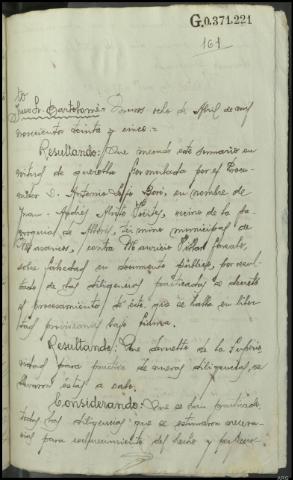 G.0.371.221
161
to
Juez Sr. Bartolomé = Tomos ocho de Abril de mil
novecientos treinta y cinco. =
Resultando: Que incoado este sumario en
virtud de querella formulada por el Procu
rador D. Antonio en nombre de
Juan vecino de la pa
rroquia de término municipal de
contra Mauricio
sobre falsedad en documento público, por resul
tado de las diligencias practicadas se decretó
el procesamiento de éste que se halla en liber
tad provisional bajo fianza.
Resultando: Que devuelto de la Superio
ridad para práctica de nuevas diligencias, se
llevaron éstas a cabo.
Considerando: Que se han practicado
todas las diligencias que se estimaron necesa
rias para esclarecimiento del hecho y